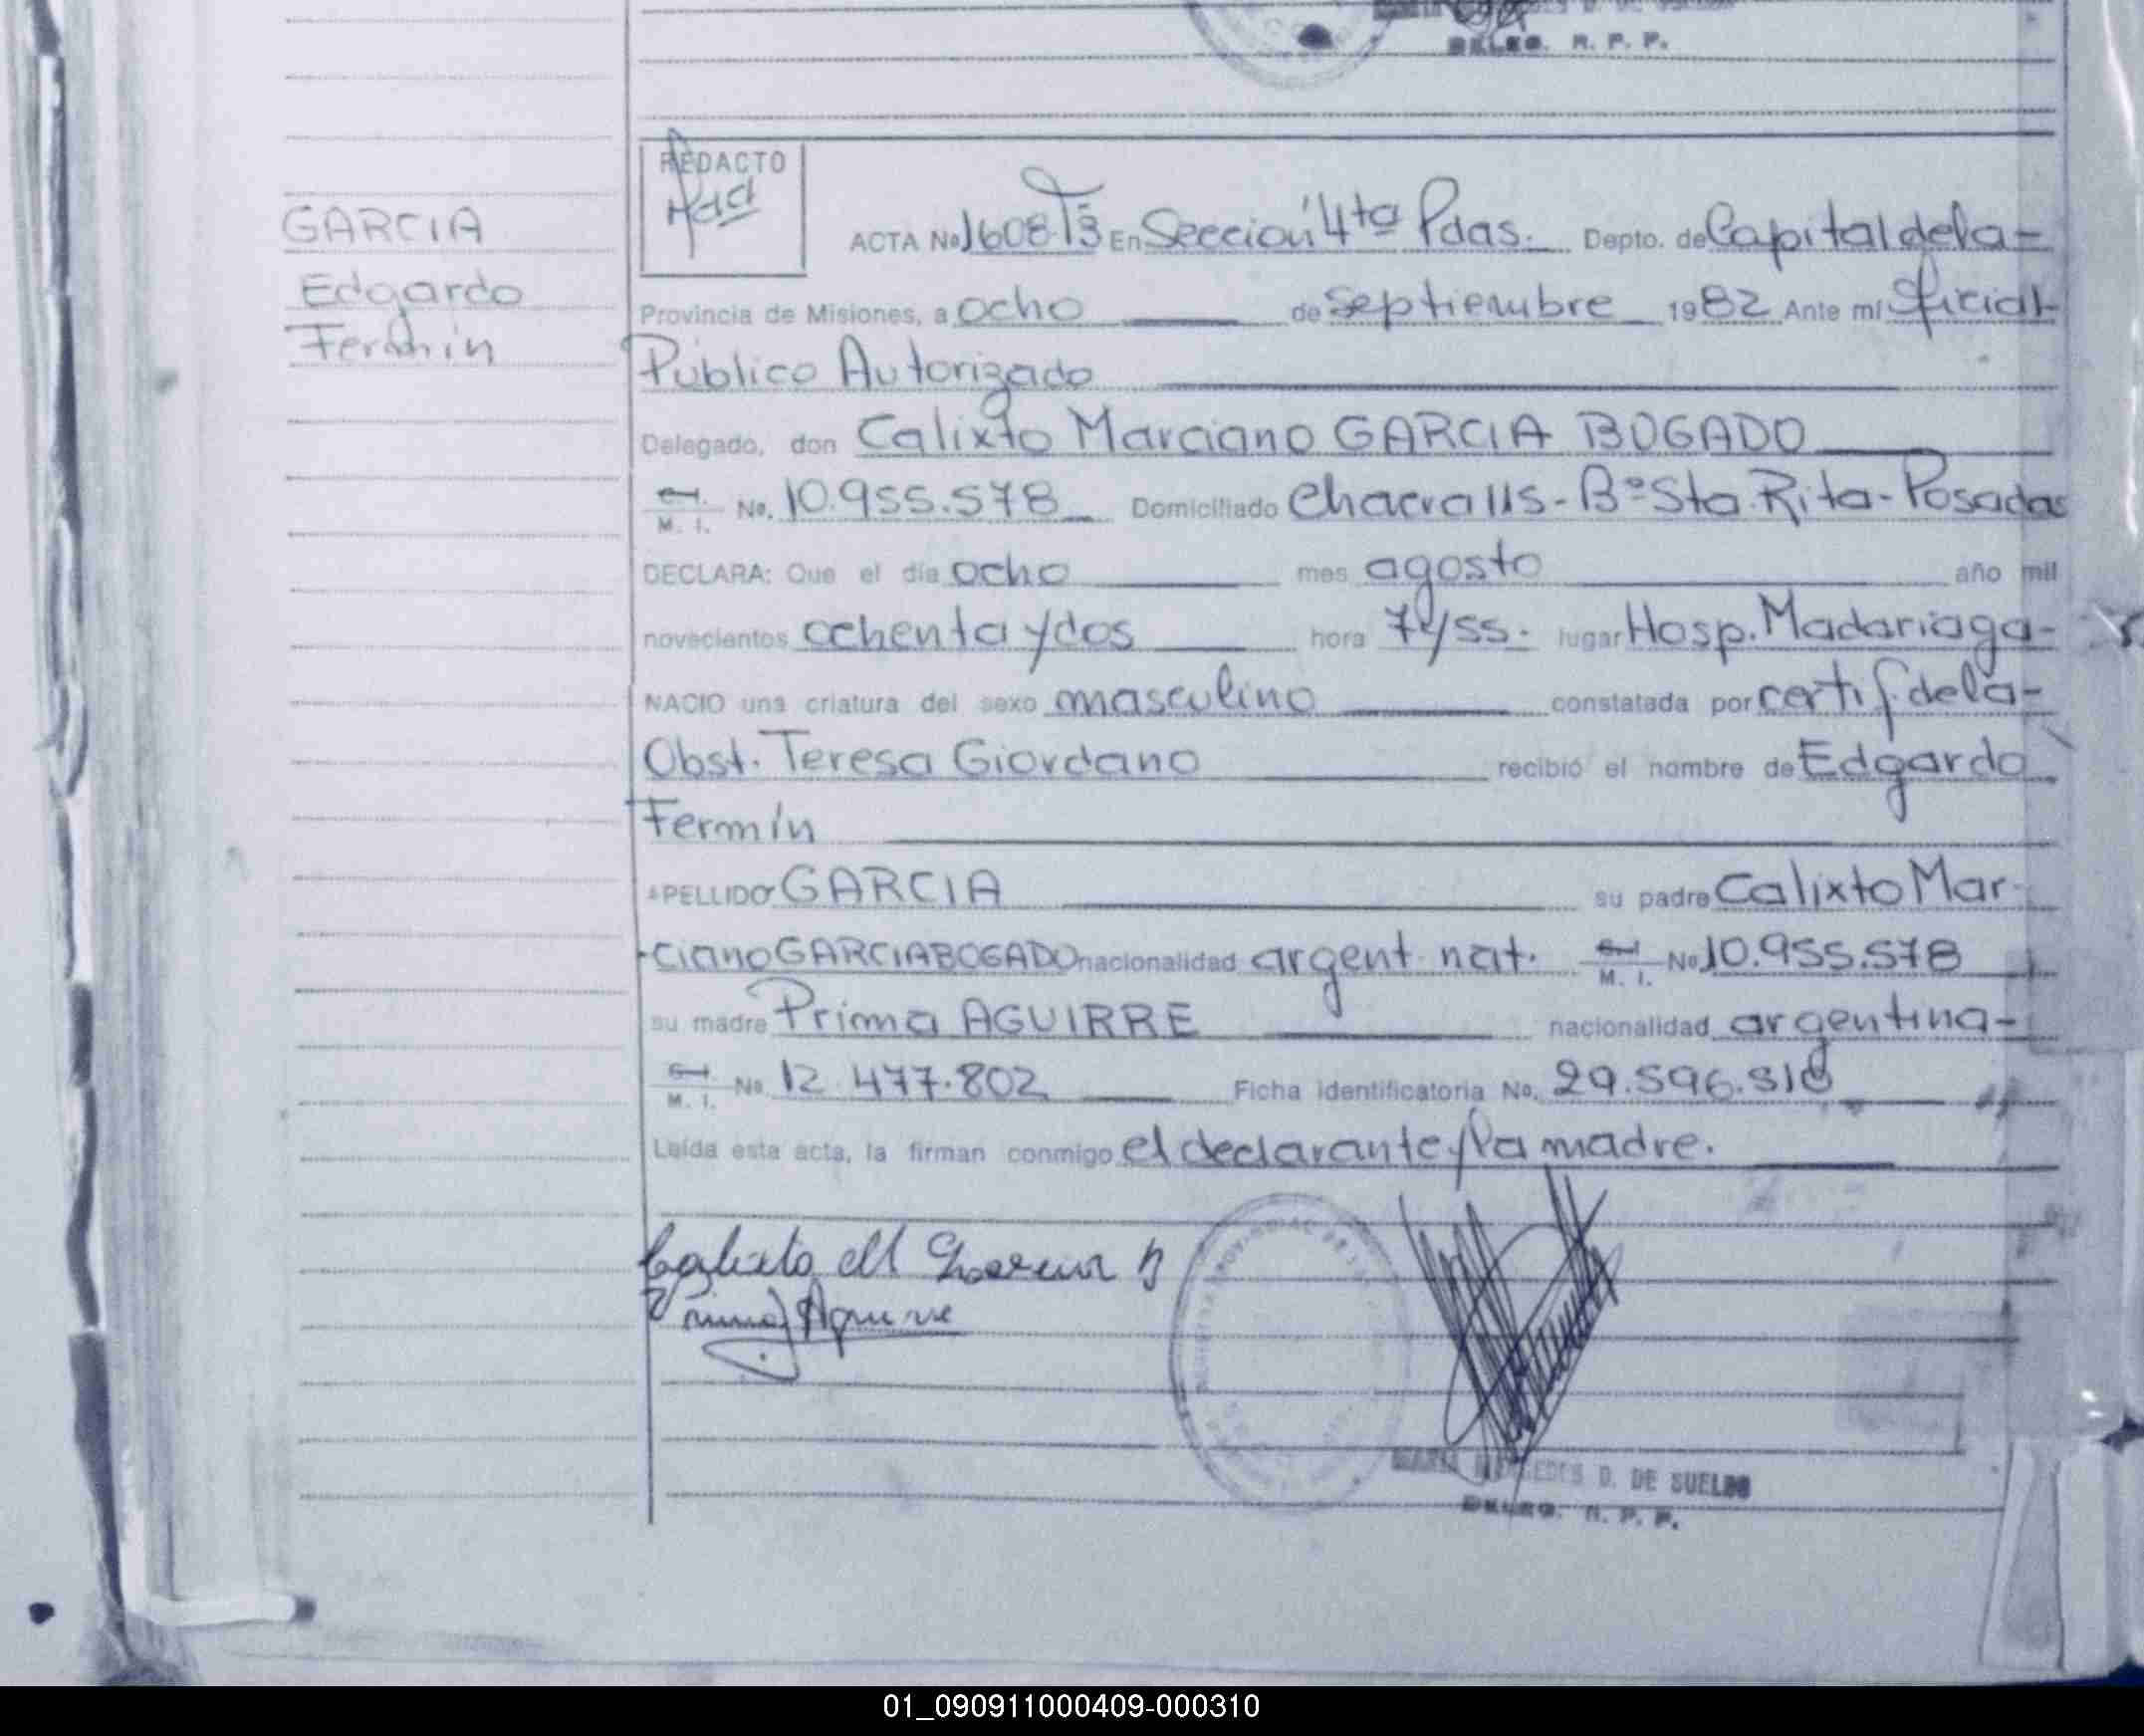 DELEG. R. P. P.
REDACTO
GARCIA
Edgardo
Fermín
ACTA No 1608 T3 En Sección 4ta Pdas. Depto. de Capital de la-
Provincia de Misiones, a ocho de septiembre 1982 Ante mí Oficial
Público Autorizado
Delegado, don Calixto Marciano GARCIA BOGADO
C.I. M. I. No. 10.955.578 Domiciliado Chacra 115- Bº Sta. Rita- Posadas
DECLARA: Que el día ocho mes agosto año mil
novecientos ochenta y dos hora 7 y/55. lugar Hosp. Madariaga-
NACIO una criatura del sexo masculino constatada por certif. de la-
Obst. Teresa Giordano recibió el nombre de Edgardo
Fermín
APELLIDO GARCIA su padre Calixto Mar-
-ciano GARCIA BOGADO nacionalidad argent. nat. C.I. M. I. No 10.955.578
su madre Prima AGUIRRE nacionalidad argentina-
C.I. M. I. No. 12.477.802 Ficha identificatoria No. 29.596.318
Leída esta acta, la firman conmigo el declarante y la madre.
Calixto M Garcia B
Prima Aguirre
MARIA MERCEDES D. DE SUELDO
DELEG. R. P. P.
01_090911000409-000310